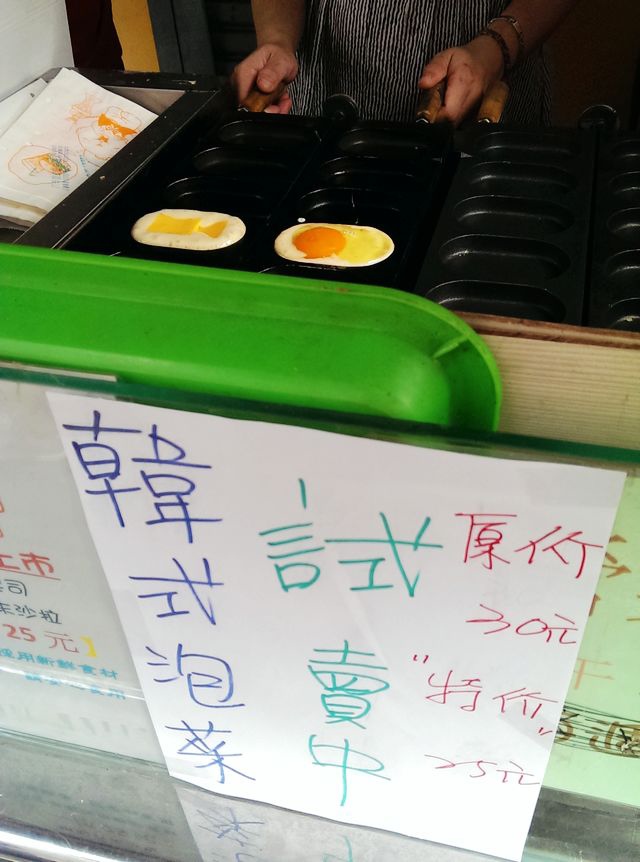 韓式泡菜
試賣中
原价
30元
"特价"
25元
上市
司
沙拉
25元】
採用新鮮食材